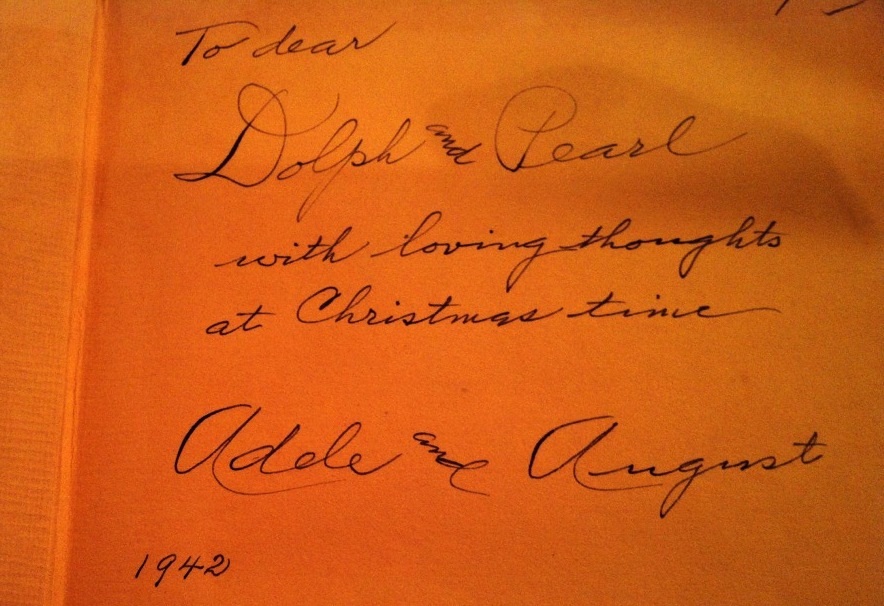 To dear
Dolph and Pearl
with loving thoughts
at Christmas time
Adele and August
1942